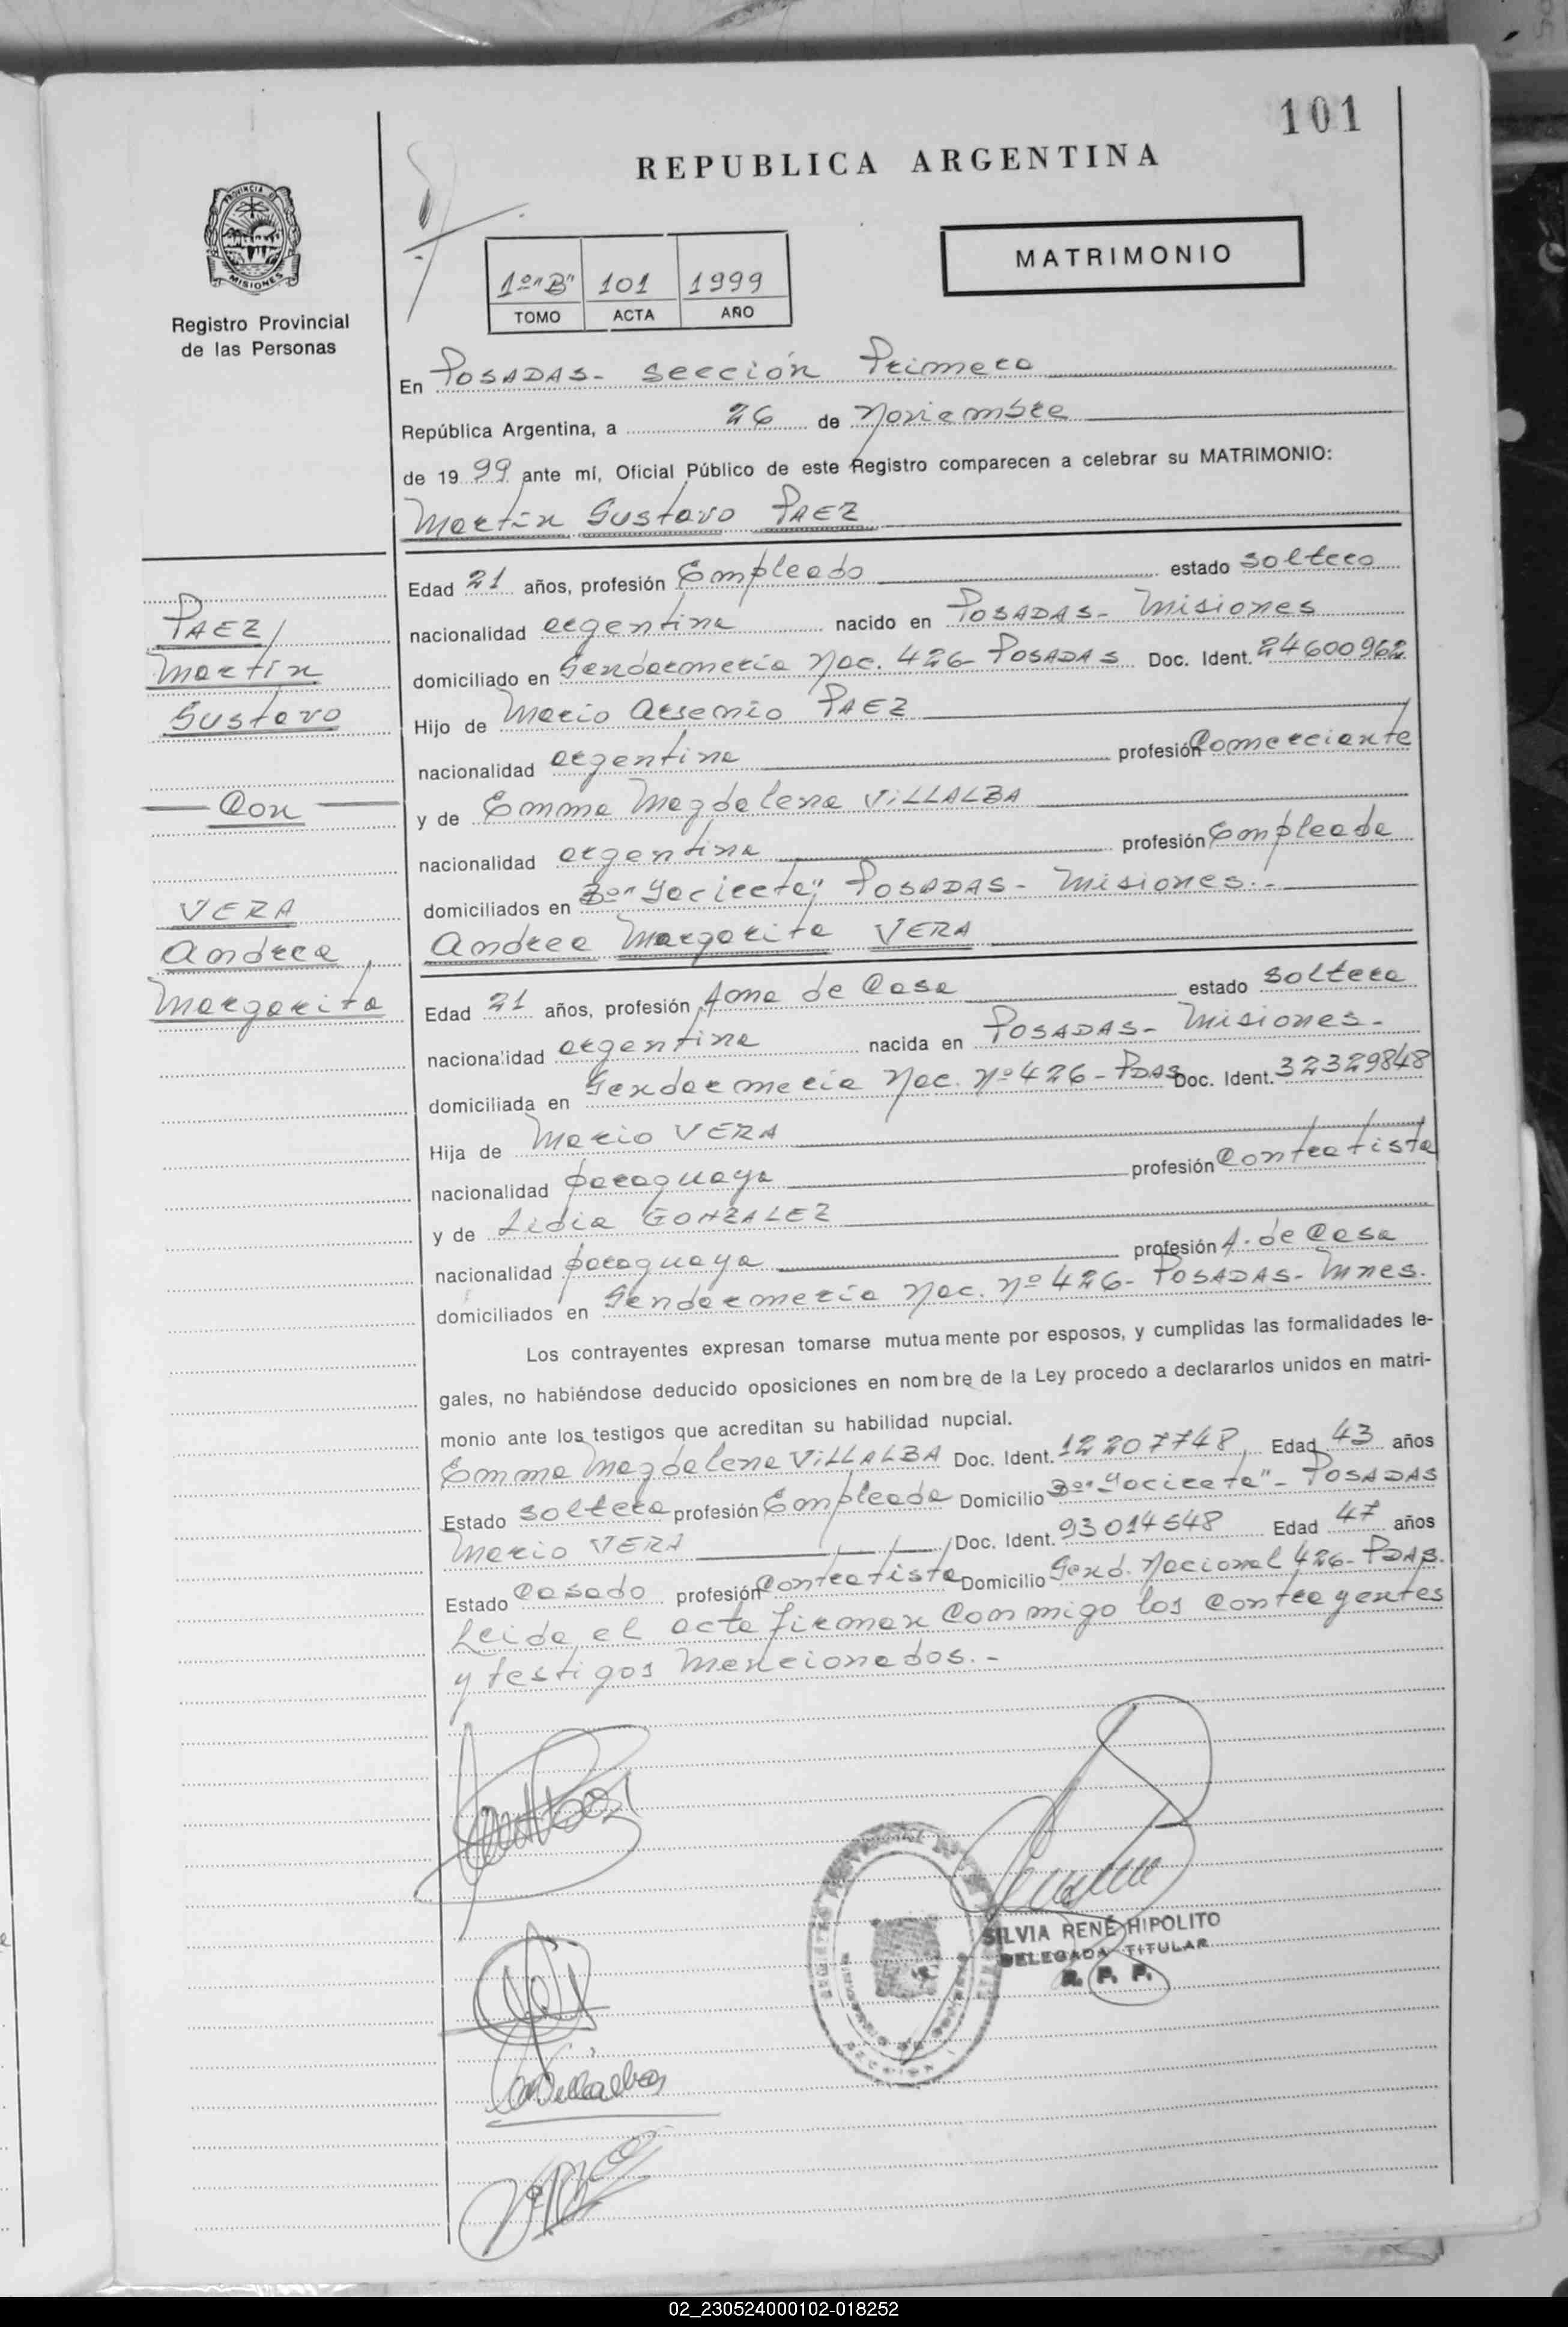 101
REPUBLICA ARGENTINA
PROVINCIA DE
MISIONES
Registro Provincial
de las Personas
1º "B" 101 1999
TOMO ACTA AÑO
MATRIMONIO
En POSADAS- sección Primera
República Argentina, a 26 de Noviembre
de 1999 ante mí, Oficial Público de este Registro comparecen a celebrar su MATRIMONIO:
Martín Gustavo PAEZ
Edad 21 años, profesión Empleado estado soltero
nacionalidad argentina nacido en POSADAS- Misiones
domiciliado en Gendarmería Nac. 426- POSADAS Doc. Ident. 24600962
Hijo de Mario Arsenio PAEZ
nacionalidad argentina profesión Comerciante
y de Emma Magdalena VILLALBA
nacionalidad argentina profesión Empleada
domiciliados en Bº "Yacireta", POSADAS- Misiones.-
Andrea Margarita VERA
Edad 21 años, profesión Ama de Casa estado soltera
nacionalidad argentina nacida en POSADAS- Misiones-
domiciliada en Gendarmería Nac. Nº 426- PDAS Doc. Ident. 32329848
Hija de Mario VERA
nacionalidad paraguaya profesión Contratista
y de Lidia GONZALEZ
nacionalidad paraguaya profesión A. de Casa
domiciliados en Gendarmería Nac. Nº 426- POSADAS- Mnes.
Los contrayentes expresan tomarse mutuamente por esposos, y cumplidas las formalidades le-
gales, no habiéndose deducido oposiciones en nombre de la Ley procedo a declararlos unidos en matri-
monio ante los testigos que acreditan su habilidad nupcial.
Emma Magdalena VILLALBA Doc. Ident. 12207748 Edad 43 años
Estado soltera profesión Empleada Domicilio Bº "Yacireta"- POSADAS
Mario VERA Doc. Ident. 93014548 Edad 47 años
Estado Casado profesión Contratista Domicilio Gend. Nacional 426- PDAS.
Leida el acta firman conmigo los contrayentes
y testigos mencionados.-
PAEZ
Martín
Gustavo
Con
VERA
Andrea
Margarita
Villalba
SILVIA RENÉ HIPOLITO
DELEGADA TITULAR
R. P. P.
02_230524000102-018252